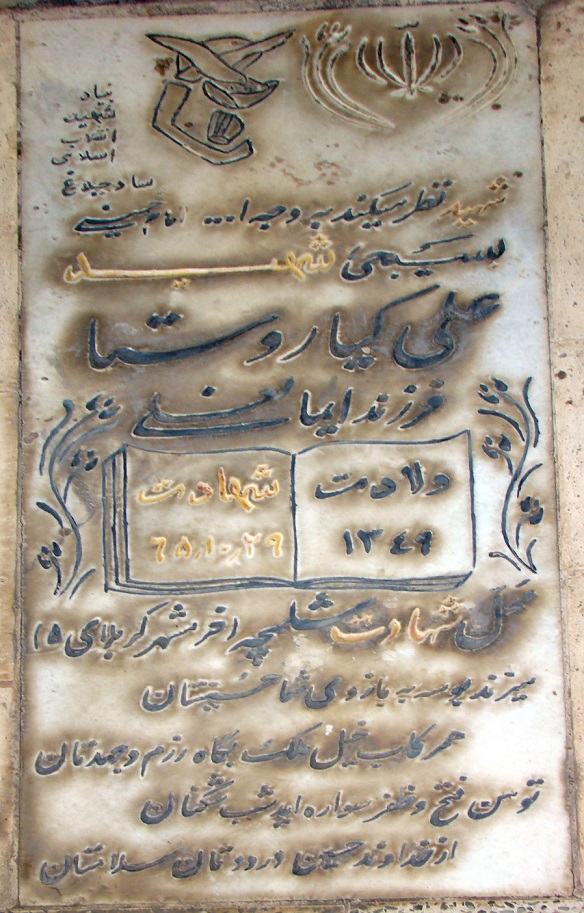 بنیاد
شهید
انقلاب
اسلامی
ساوجبلاغ
شهید نظر میکند به وجه ا... امام خمینی
بسیجی شهید
علی کیا روستا
فرزند ایمانعلی
ولادت
۱۳۴۹
شهادت
۶۵٫۱۰٫۲۹
محل شهادت شلمچه (خرمشهر کربلای ۵)
میزند بوسه به بازوی شما خمینیتان
همرکاب خیل ملک بگاه رزم و جهدتان
توسن فتح و ظفر سواره اید شب شکنان
از خداوند حسین درودتان سلامتان